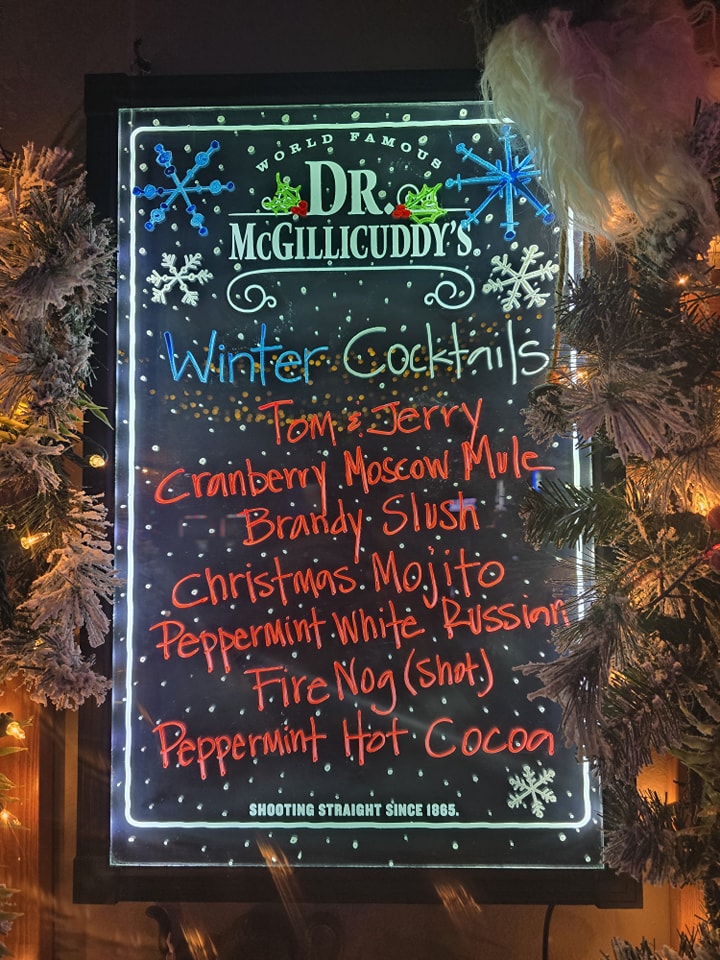 WORLD FAMOUS
DR.
McGILLICUDDY'S®
Winter Cocktails
Tom & Jerry
Cranberry Moscow Mule
Brandy Slush
Christmas Mojito
Peppermint White Russian
Fire Nog (shot)
Peppermint Hot Cocoa
SHOOTING STRAIGHT SINCE 1865.